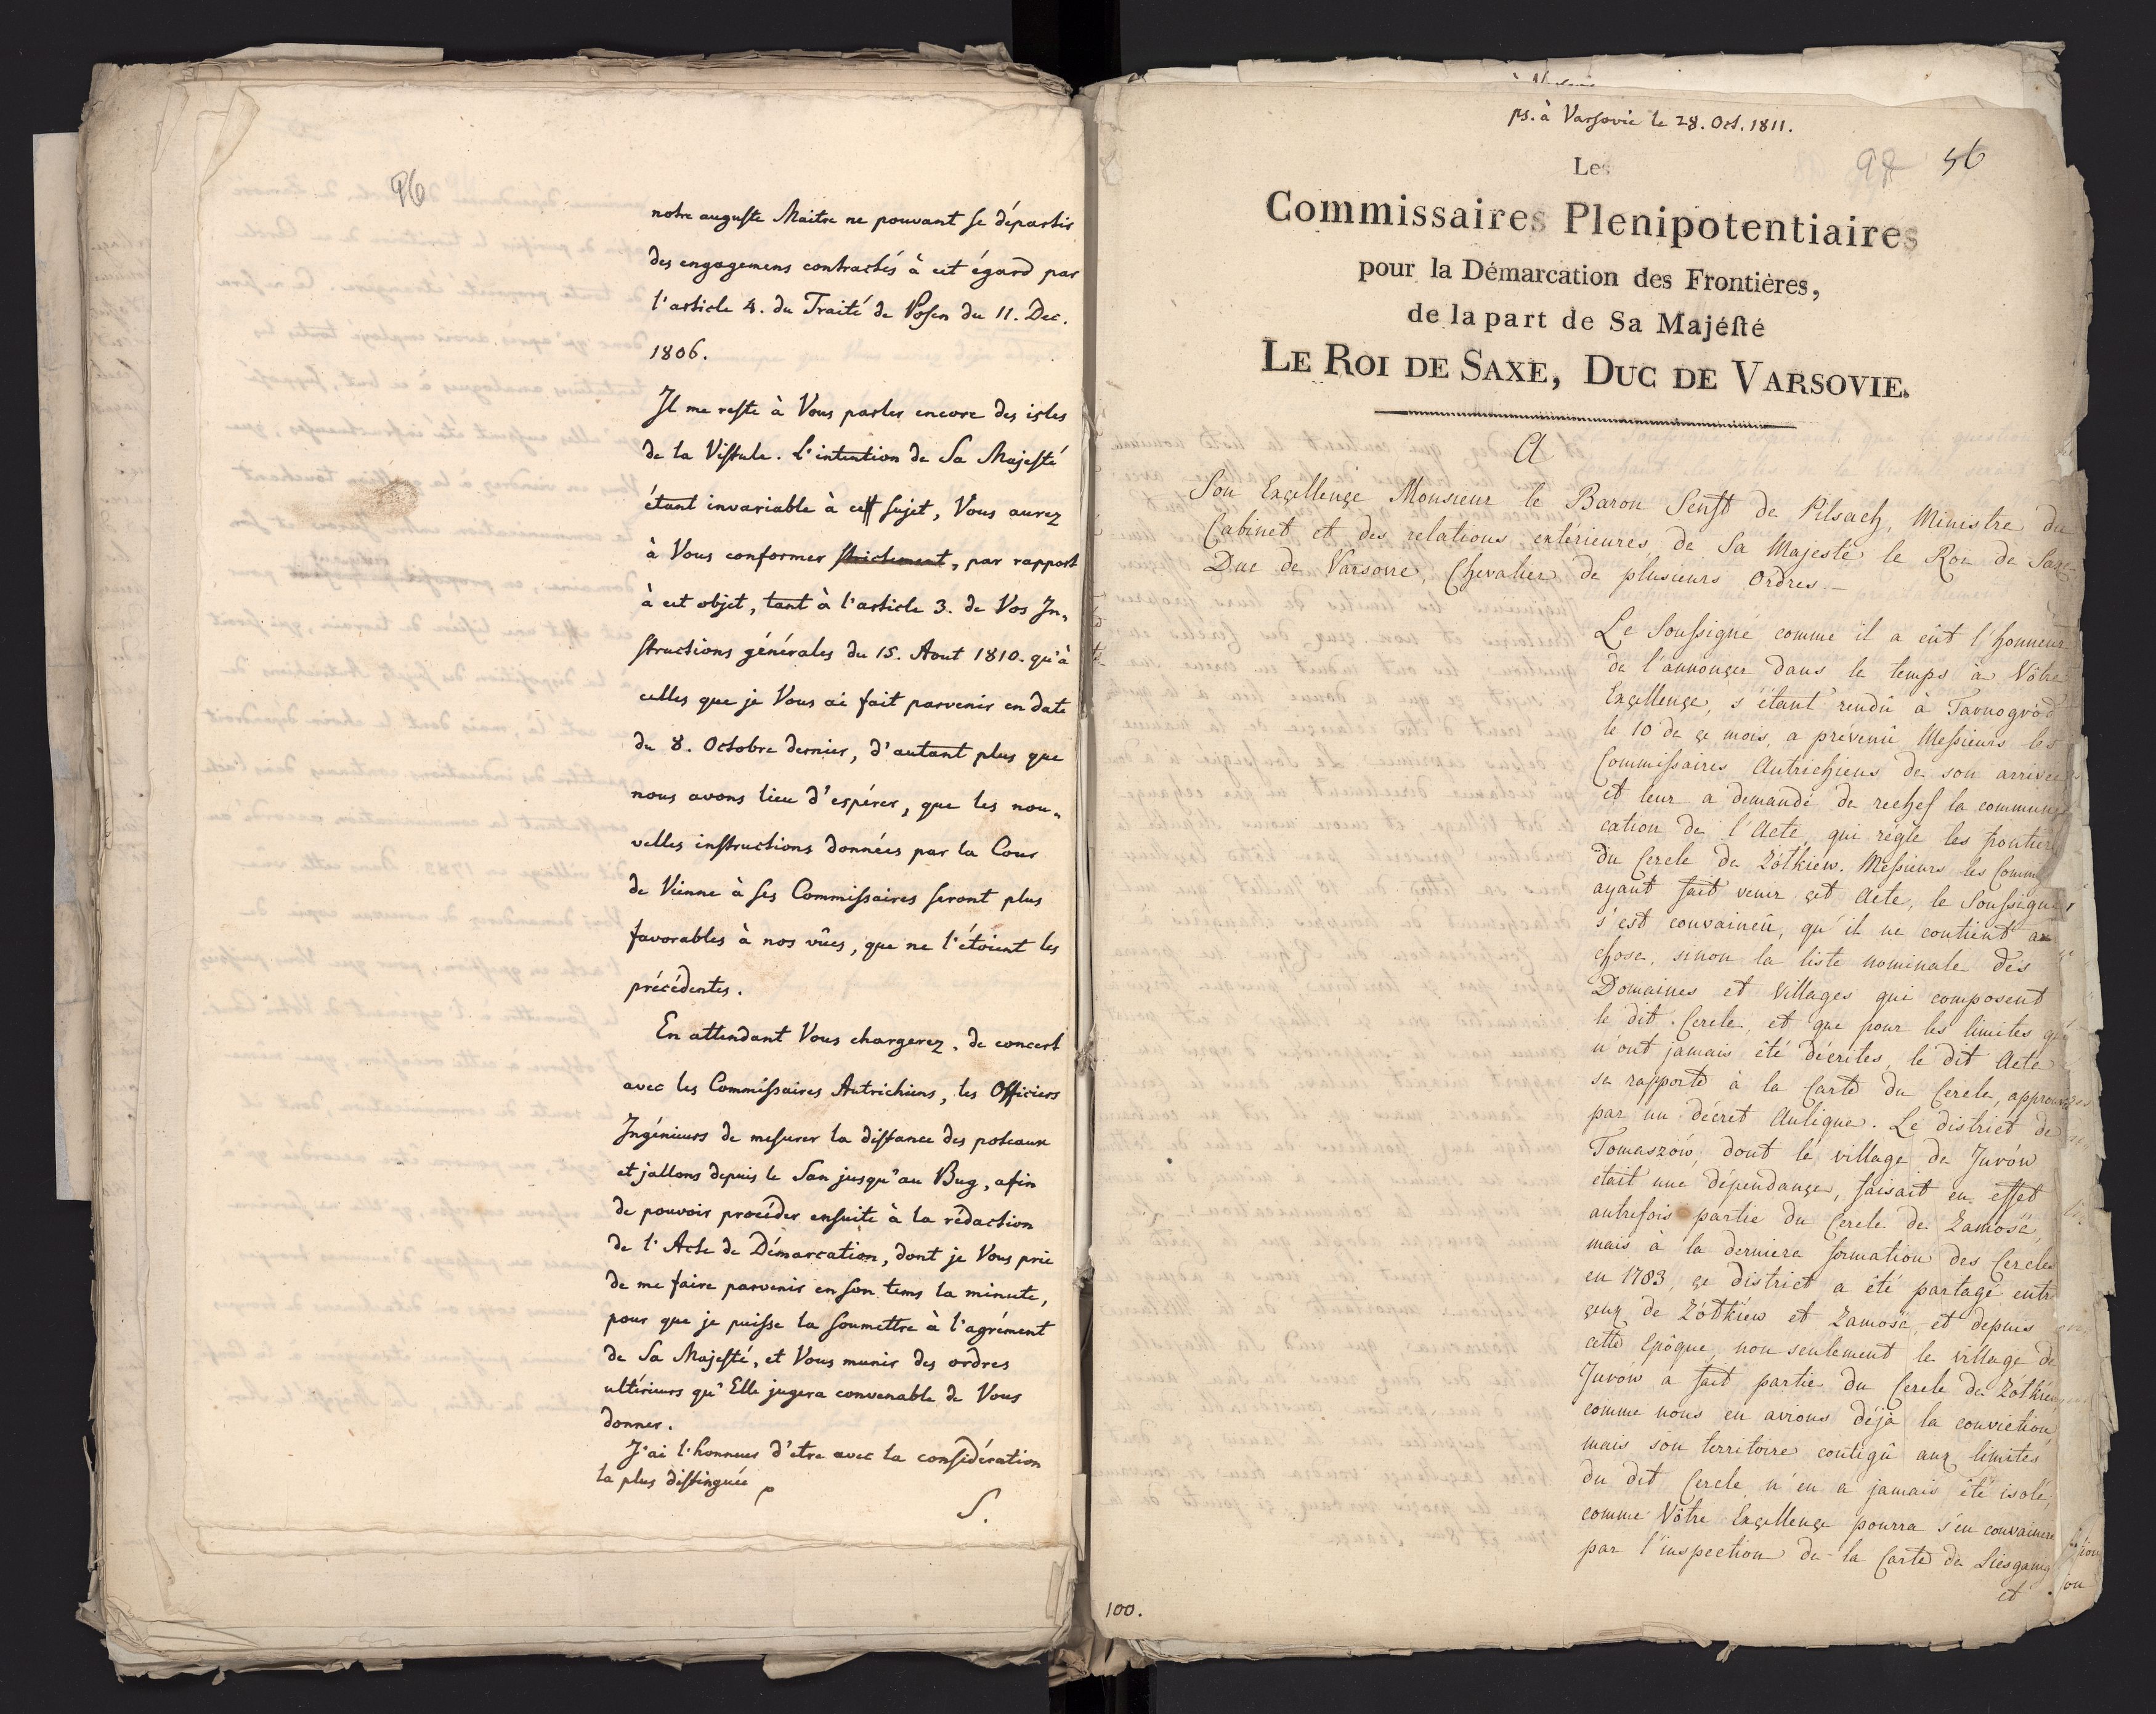 96
notre auguste Maitre ne pouvant se départir
des engagemens contractés à cet égard par
l'article 4. du Traité de Posen du 11. Dec.
1806.
Il me reste à Vous parler encore des isles
de la Vistule. L'intention de Sa Majesté
étant invariable à cet sujet, Vous aurez
à Vous conformer strictement, par rapport
à cet objet, tant à l'article 3. de Vos In-
structions générales du 15. Aout 1810. qu'à
celles que je Vous ai fait parvenir en date
du 8. Octobre dernier, d'autant plus que
nous avons lieu d'espérer, que les nou-
velles instructions données par la Cour
de Vienne à ses Commissaires seront plus
favorables à nos vûes, que ne l'étoient les
précédentes.
En attendant Vous chargerez, de concert
avec les Commissaires Autrichiens, les Officiers
Ingénieurs de mesurer la distance des poteaux
et jallons depuis le San jusqu'au Bug, afin
de pouvoir procéder ensuite à la rédaction
de l'Acte de Démarcation, dont je Vous prie
de me faire parvenir en son tems la minute,
pour que je puisse la soumettre à l'agrément
de Sa Majesté, et Vous munir des ordres
ultérieurs qu'Elle jugera convenable de Vous
donner.
J'ai l'honneur d'etre avec la considération
la plus distinguée
S.
ps. à Varsovie le 28. Oct. 1811.
98 56
Les
Commissaires Plenipotentiaires
pour la Démarcation des Frontières,
de la part de Sa Majéſté
LE ROI DE SAXE, DUC DE VARSOVIE.
A
Son Excellence Monsieur le Baron Senft de Pilsach, Ministre du
Cabinet et des relations extérieures de Sa Majesté le Roi de Saxe
Duc de Varsovie, Chevalier de plusieurs Ordres.-
Le Soussigné comme il a eût l'honneur
de l'annonçer dans le temps à Vôtre
Excellence, s'étant rendû à Tarnogród
le 10 de çe mois, a prévenû Messieurs les
Commissaires Autrichiens de son arrivée
et leur a demandé de rechef la communi
cation de l'Acte, qui regle les frontier
du Cercle de Zółkiew. Messieurs les Commi
ayant fait venir çet Acte, le Soussigné
s'est convaincû, qu'il ne contient au
chose, sinon la liste nominale des
Domaines et Villages qui composent
le dit Cercle, et que pour les limites qui
n'ont jamais été décrites, le dit Acte
se rapporte à la Carte du Cercle, approuvée
par un décret Aulique. Le district de
Tomaszów, dont le village de Jurów
etait une dépendançe, faisait en effet
autrefois partie du Cercle de Zamosć,
mais à la derniere formation des Cercles
en 1783, çe district a été partagé entre
çeux de Zółkiew et Zamosć, et depuis
cette Epôque, non seulement le village de
Jurów a fait partie du Cercle de Zółkiew
comme nous en avions déjà la conviction,
mais son territoire contigû aux limites
du dit Cercle n'en a jamais été isolé,
comme Vôtre Excellençe pourra s'en convaincre
par l'inspection de la Carte de Liesganig
et
100.